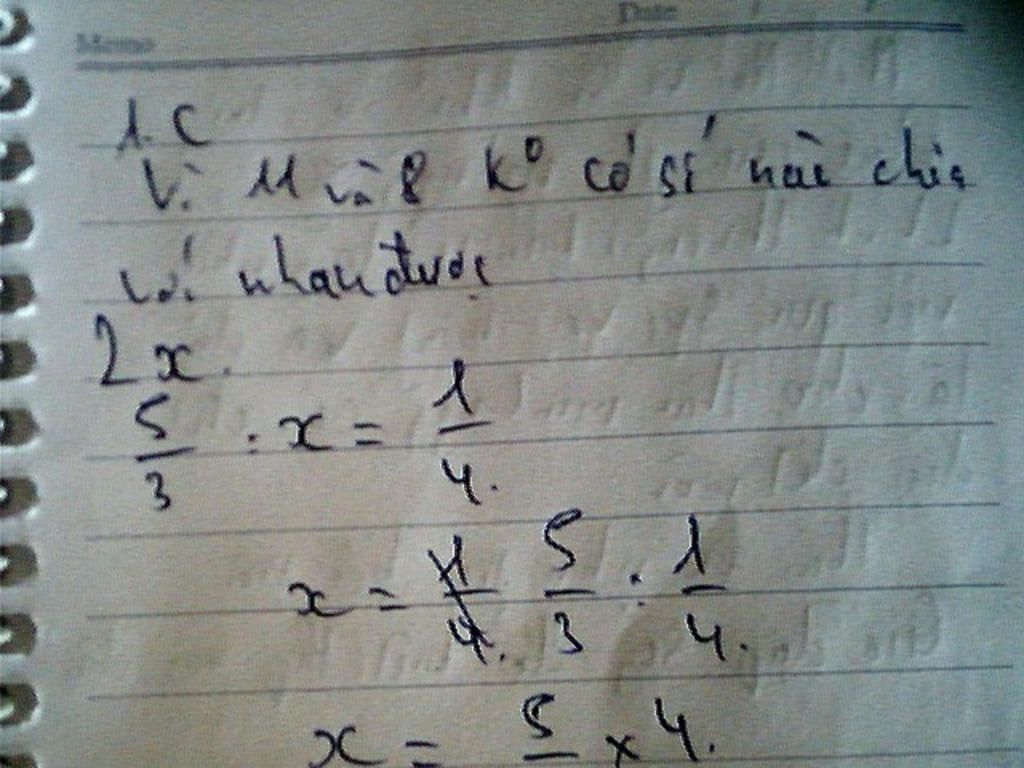 Memo Date
1. C
Vì 11 và 8 ko có số nào chia
với nhau được
2 x.
5/3 : x = 1/4.
x = 5/3 : 1/4.
x = 5 × 4.